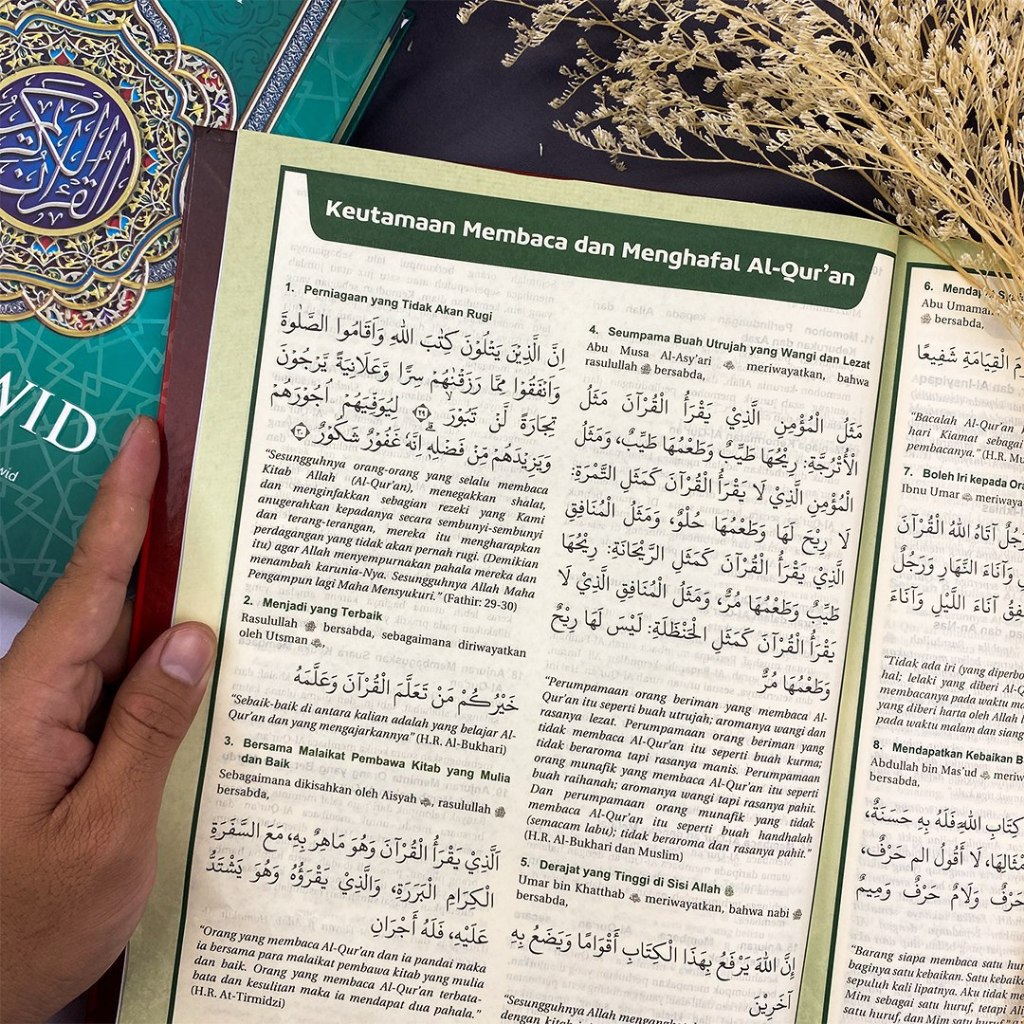 القرآن الكريم
WID
wid
Keutamaan Membaca dan Menghafal Al-Qur'an
1. Perniagaan yang Tidak Akan Rugi
اِنَّ الَّذِيْنَ يَتْلُوْنَ كِتٰبَ اللّٰهِ وَاَقَامُوا الصَّلٰوةَ
وَاَنْفَقُوْا مِمَّا رَزَقْنٰهُمْ سِرًّا وَّعَلَانِيَةً يَّرْجُوْنَ
تِجَارَةً لَّنْ تَبُوْرَۙ ﴿٢٩﴾ لِيُوَفِّيَهُمْ اُجُوْرَهُمْ
وَيَزِيْدَهُمْ مِّنْ فَضْلِهٖۗ اِنَّهٗ غَفُوْرٌ شَكُوْرٌ ﴿٣٠﴾
"Sesungguhnya orang-orang yang selalu membaca
Kitab Allah (Al-Qur'an), menegakkan shalat,
dan menginfakkan sebagian rezeki yang Kami
anugerahkan kepadanya secara sembunyi-sembunyi
dan terang-terangan, mereka itu mengharapkan
perdagangan yang tidak akan pernah rugi. (Demikian
itu) agar Allah menyempurnakan pahala mereka dan
menambah karunia-Nya. Sesungguhnya Allah Maha
Pengampun lagi Maha Mensyukuri." (Fathir: 29-30)
2. Menjadi yang Terbaik
Rasulullah ﷺ bersabda, sebagaimana diriwayatkan
oleh Utsman
خَيْرُكُمْ مَنْ تَعَلَّمَ الْقُرْآنَ وَعَلَّمَهُ
"Sebaik-baik di antara kalian adalah yang belajar Al-
Qur'an dan yang mengajarkannya" (H.R. Al-Bukhari)
3. Bersama Malaikat Pembawa Kitab yang Mulia
dan Baik
Sebagaimana dikisahkan oleh Aisyah , rasulullah ﷺ
bersabda,
الَّذِي يَقْرَأُ الْقُرْآنَ وَهُوَ مَاهِرٌ بِهِ، مَعَ السَّفَرَةِ
الْكِرَامِ الْبَرَرَةِ، وَالَّذِي يَقْرَؤُهُ وَهُوَ يَشْتَدُّ
عَلَيْهِ، فَلَهُ أَجْرَانِ
"Orang yang membaca Al-Qur'an dan ia pandai maka
ia bersama para malaikat pembawa kitab yang mulia
dan baik. Orang yang membaca Al-Qur'an terbata-
bata dan kesulitan maka ia mendapat dua pahala."
(H.R. At-Tirmidzi)
4. Seumpama Buah Utrujah yang Wangi dan Lezat
Abu Musa Al-Asy'ari meriwayatkan, bahwa
rasulullah ﷺ bersabda,
مَثَلُ الْمُؤْمِنِ الَّذِيْ يَقْرَأُ الْقُرْآنَ مَثَلُ
الْأُتْرُجَّةِ: رِيْحُهَا طَيِّبٌ وَطَعْمُهَا طَيِّبٌ، وَمَثَلُ
الْمُؤْمِنِ الَّذِيْ لَا يَقْرَأُ الْقُرْآنَ كَمَثَلِ التَّمْرَةِ:
لَا رِيْحَ لَهَا وَطَعْمُهَا حُلْوٌ، وَمَثَلُ الْمُنَافِقِ
الَّذِيْ يَقْرَأُ الْقُرْآنَ كَمَثَلِ الرَّيْحَانَةِ: رِيْحُهَا
طَيِّبٌ وَطَعْمُهَا مُرٌّ، وَمَثَلُ الْمُنَافِقِ الَّذِيْ لَا
يَقْرَأُ الْقُرْآنَ كَمَثَلِ الْحَنْظَلَةِ: لَيْسَ لَهَا رِيْحٌ
وَطَعْمُهَا مُرٌّ
"Perumpamaan orang beriman yang membaca Al-
Qur'an itu seperti buah utrujah; aromanya wangi dan
rasanya lezat. Perumpamaan orang beriman yang
tidak membaca Al-Qur'an itu seperti buah kurma;
tidak beraroma tapi rasanya manis. Perumpamaan
orang munafik yang membaca Al-Qur'an itu seperti
buah raihanah; aromanya wangi tapi rasanya pahit.
Dan perumpamaan orang munafik yang tidak
membaca Al-Qur'an itu seperti buah handhalah
(semacam labu); tidak beraroma dan rasanya pahit."
(H.R. Al-Bukhari dan Muslim)
5. Derajat yang Tinggi di Sisi Allah
Umar bin Khatthab meriwayatkan, bahwa nabi ﷺ
bersabda,
إِنَّ اللهَ يَرْفَعُ بِهَذَا الْكِتَابِ أَقْوَامًا وَيَضَعُ بِهِ
آخَرِيْنَ
"Sesungguhnya Allah
dengan kitab
6.
Abu Umamah
bersabda,
الْقِيَامَةِ شَفِيْعًا
"Bacalah Al-Qur'an
hari Kiamat sebagai
pembacanya." (H.R.
7. Boleh Iri kepada
Ibnu Umar
آتَاهُ اللهُ الْقُرْآنَ
وَآنَاءَ النَّهَارِ وَرَجُلٌ
آنَاءَ اللَّيْلِ وَآنَاءَ
"Tidak ada iri (yang
hal; lelaki yang diberi
membacanya pada waktu
yang diberi harta oleh Allah
pada waktu malam dan
8. Mendapatkan Kebaikan
Abdullah bin Mas'ud
bersabda,
كِتَابِ اللهِ فَلَهُ بِهِ حَسَنَةٌ،
لَا أَقُولُ الم حَرْفٌ،
حَرْفٌ وَلَامٌ حَرْفٌ وَمِيمٌ
"Barang siapa membaca satu
baginya satu kebaikan. Satu
sepuluh kali lipatnya. Aku tidak
Mim sebagai satu huruf, tetapi
satu huruf, dan Mim satu